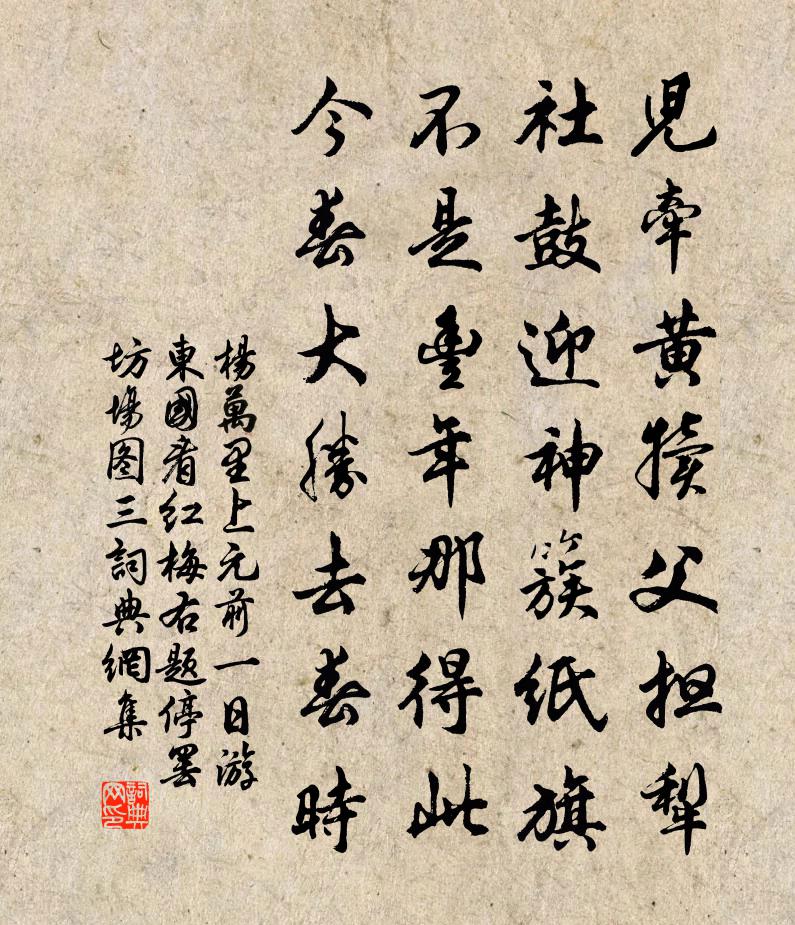 児牽黄犢父担犁
社鼓迎神簇紙旗
不是豊年那得此
今春大勝去春時
楊萬里上元前一日游
東國看红梅右題停罢
坊場图三詞典網集
詞典网印